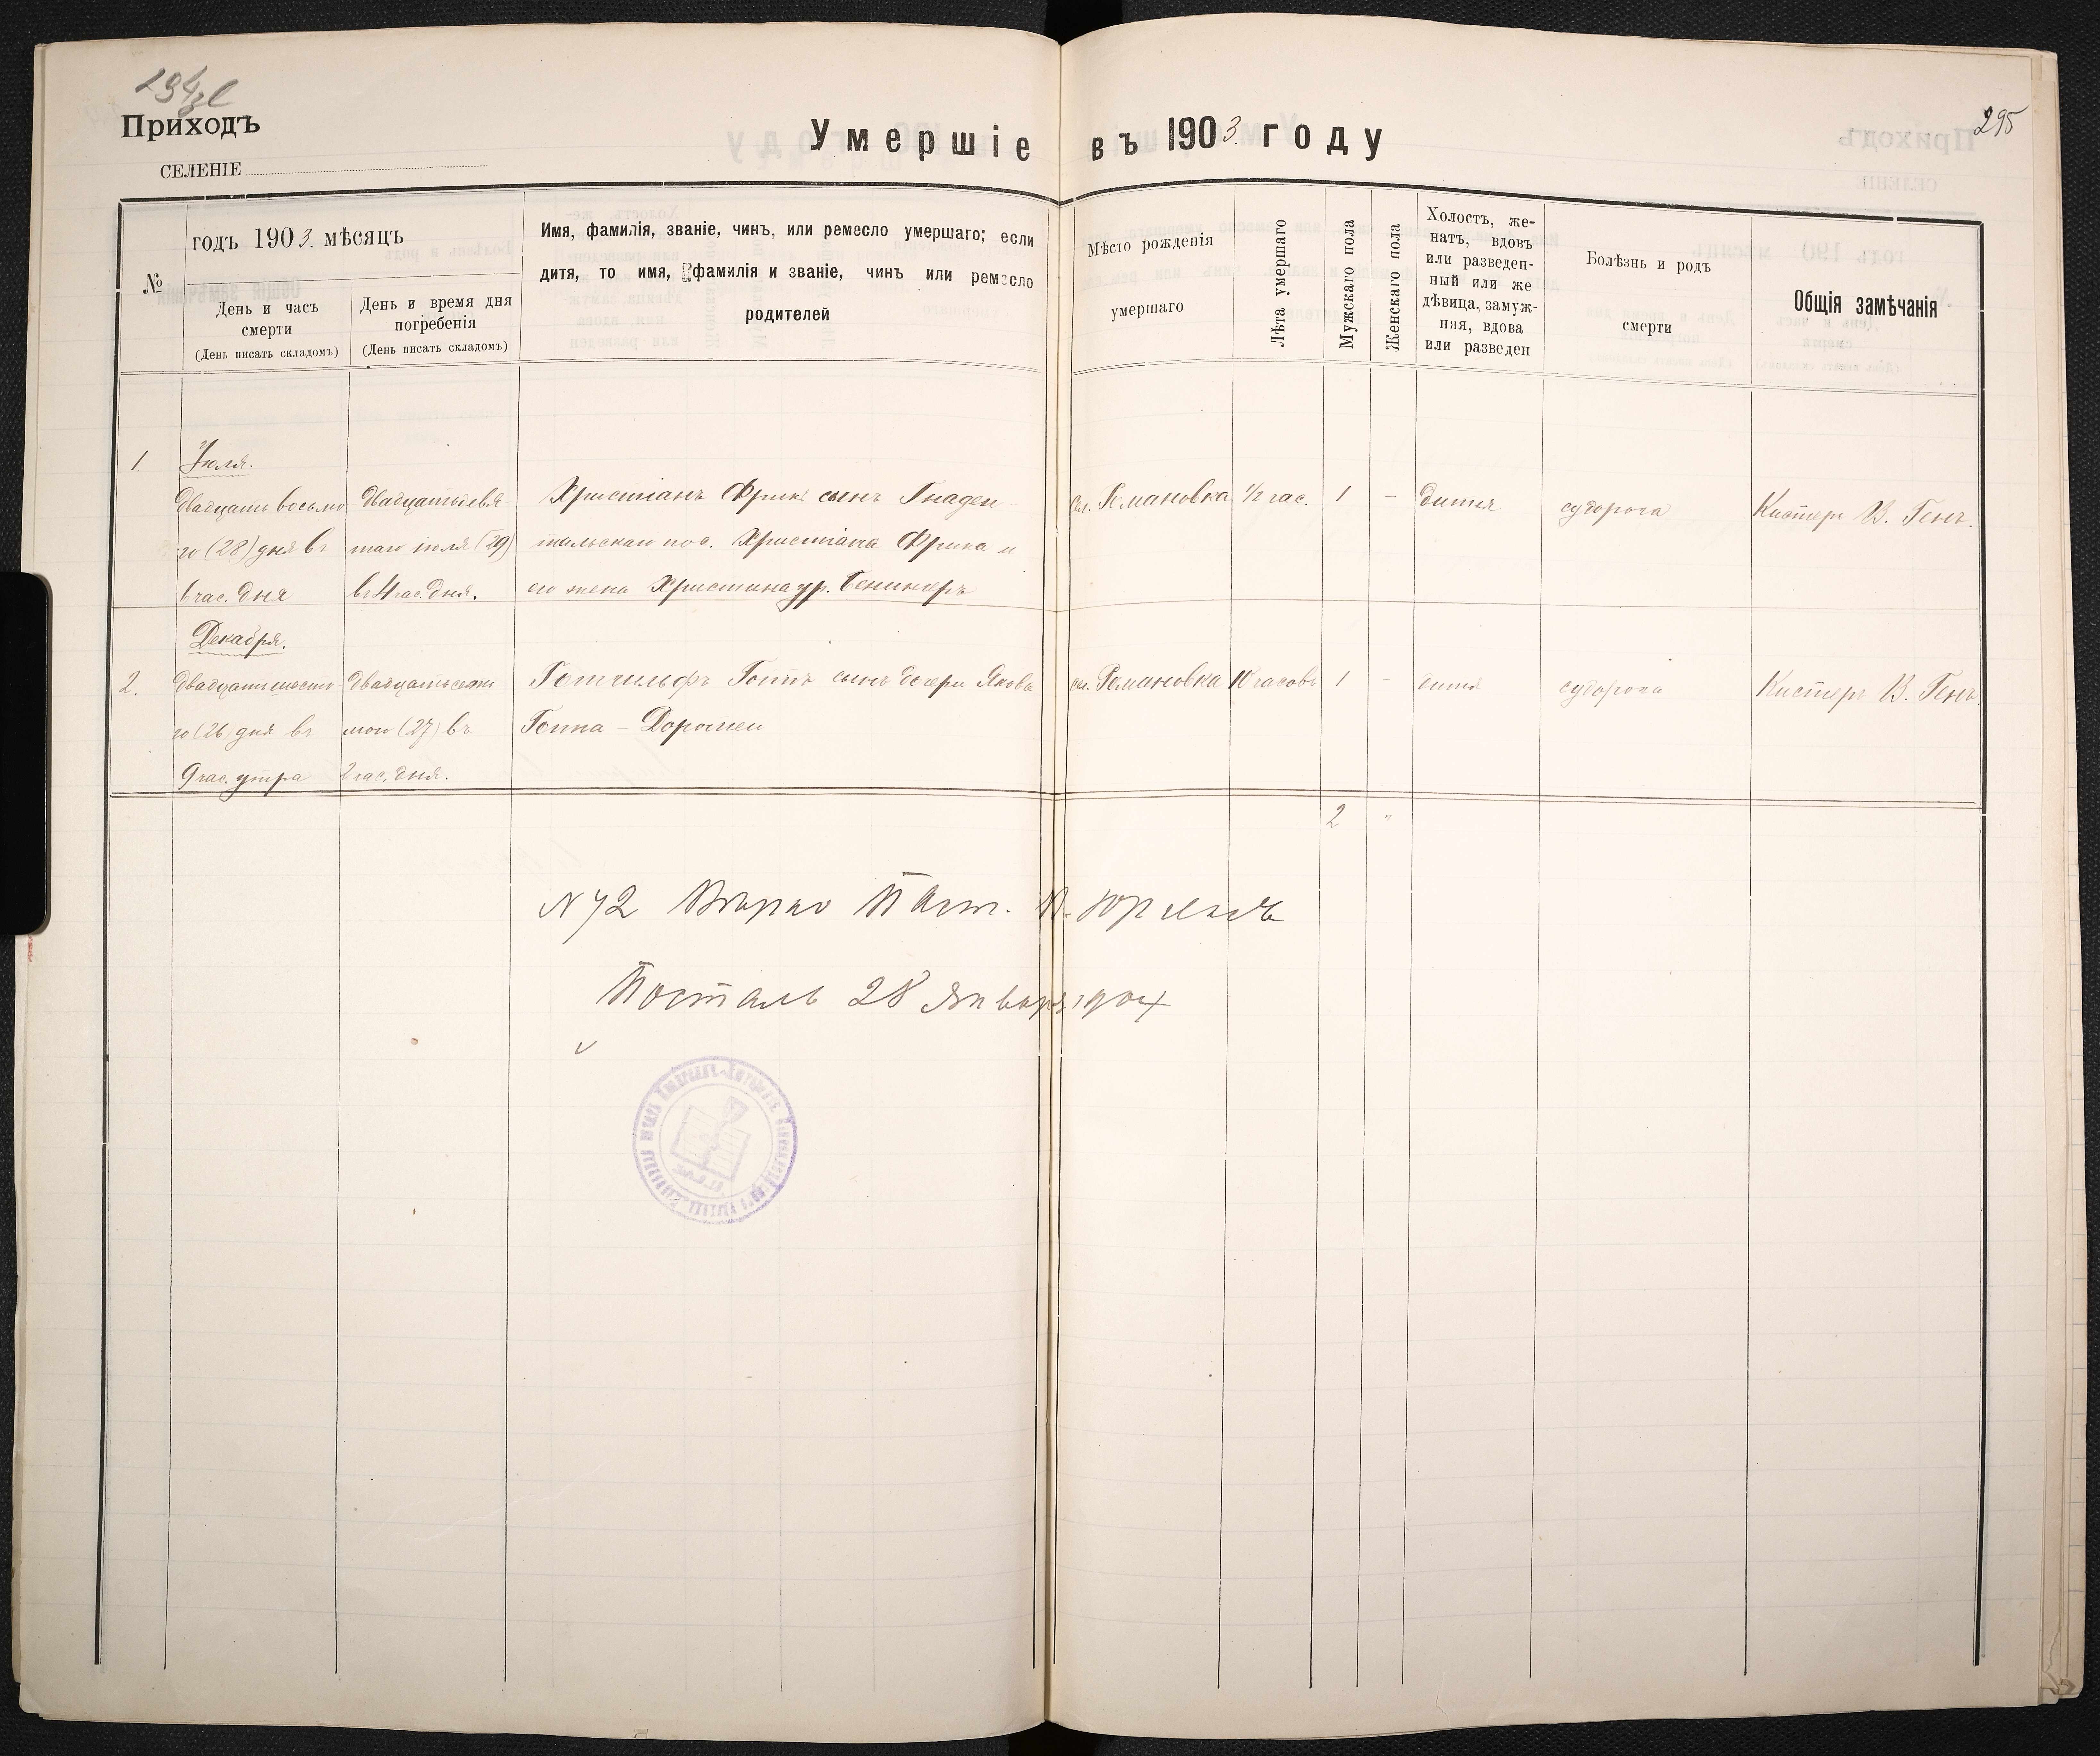 Приходъ
СЕЛЕНІЕ
Умершіе въ 1903 году
295
№
годъ 1903 мѣсяцъ
День и часъ смерти
(День писать складомъ)
День и время дня погребенія
(День писать складомъ)
Имя, фамилія, званіе, чинъ, или ремесло умершаго; если
дитя, то имя, фамилія и званіе, чинъ или ремесло
родителей
Мѣсто рожденія
умершаго
Лѣта умершаго
Мужскаго пола
Женскаго пола
Холостъ, же-
натъ, вдовъ
или разведен-
ный или же
дѣвица, замуж-
няя, вдова
или разведен
Болѣзнь и родъ
смерти
Общія замѣчанія
1
Іюля.
Двадцать восьмо
го (28) дня въ
час. дня
двадцатьдевя
таго іюля (29)
въ 4 час. дня.
Христіанъ Фрикъ сынъ Гнаден
тальскаго пос. Христіана Фрика и
его жена Христина ур.
сел. Романовка
1/2 час.
1
–
дитя
судорога
Кистеръ В. Генъ.
Декабря.
2.
двадцатьшесто
го (26) дня въ
9 час. утра
двадцатьседь
мого (27) въ
2 час. дня.
Готгильфъ Гоппъ сынъ Якова
Гоппа – Доротеи
сел. Романовка
10 часовъ
1
–
дитя
судорога
Кистеръ В. Генъ.
2 "
N 72 Вѣрно Паст. В.
Посталь 28 Января 1904